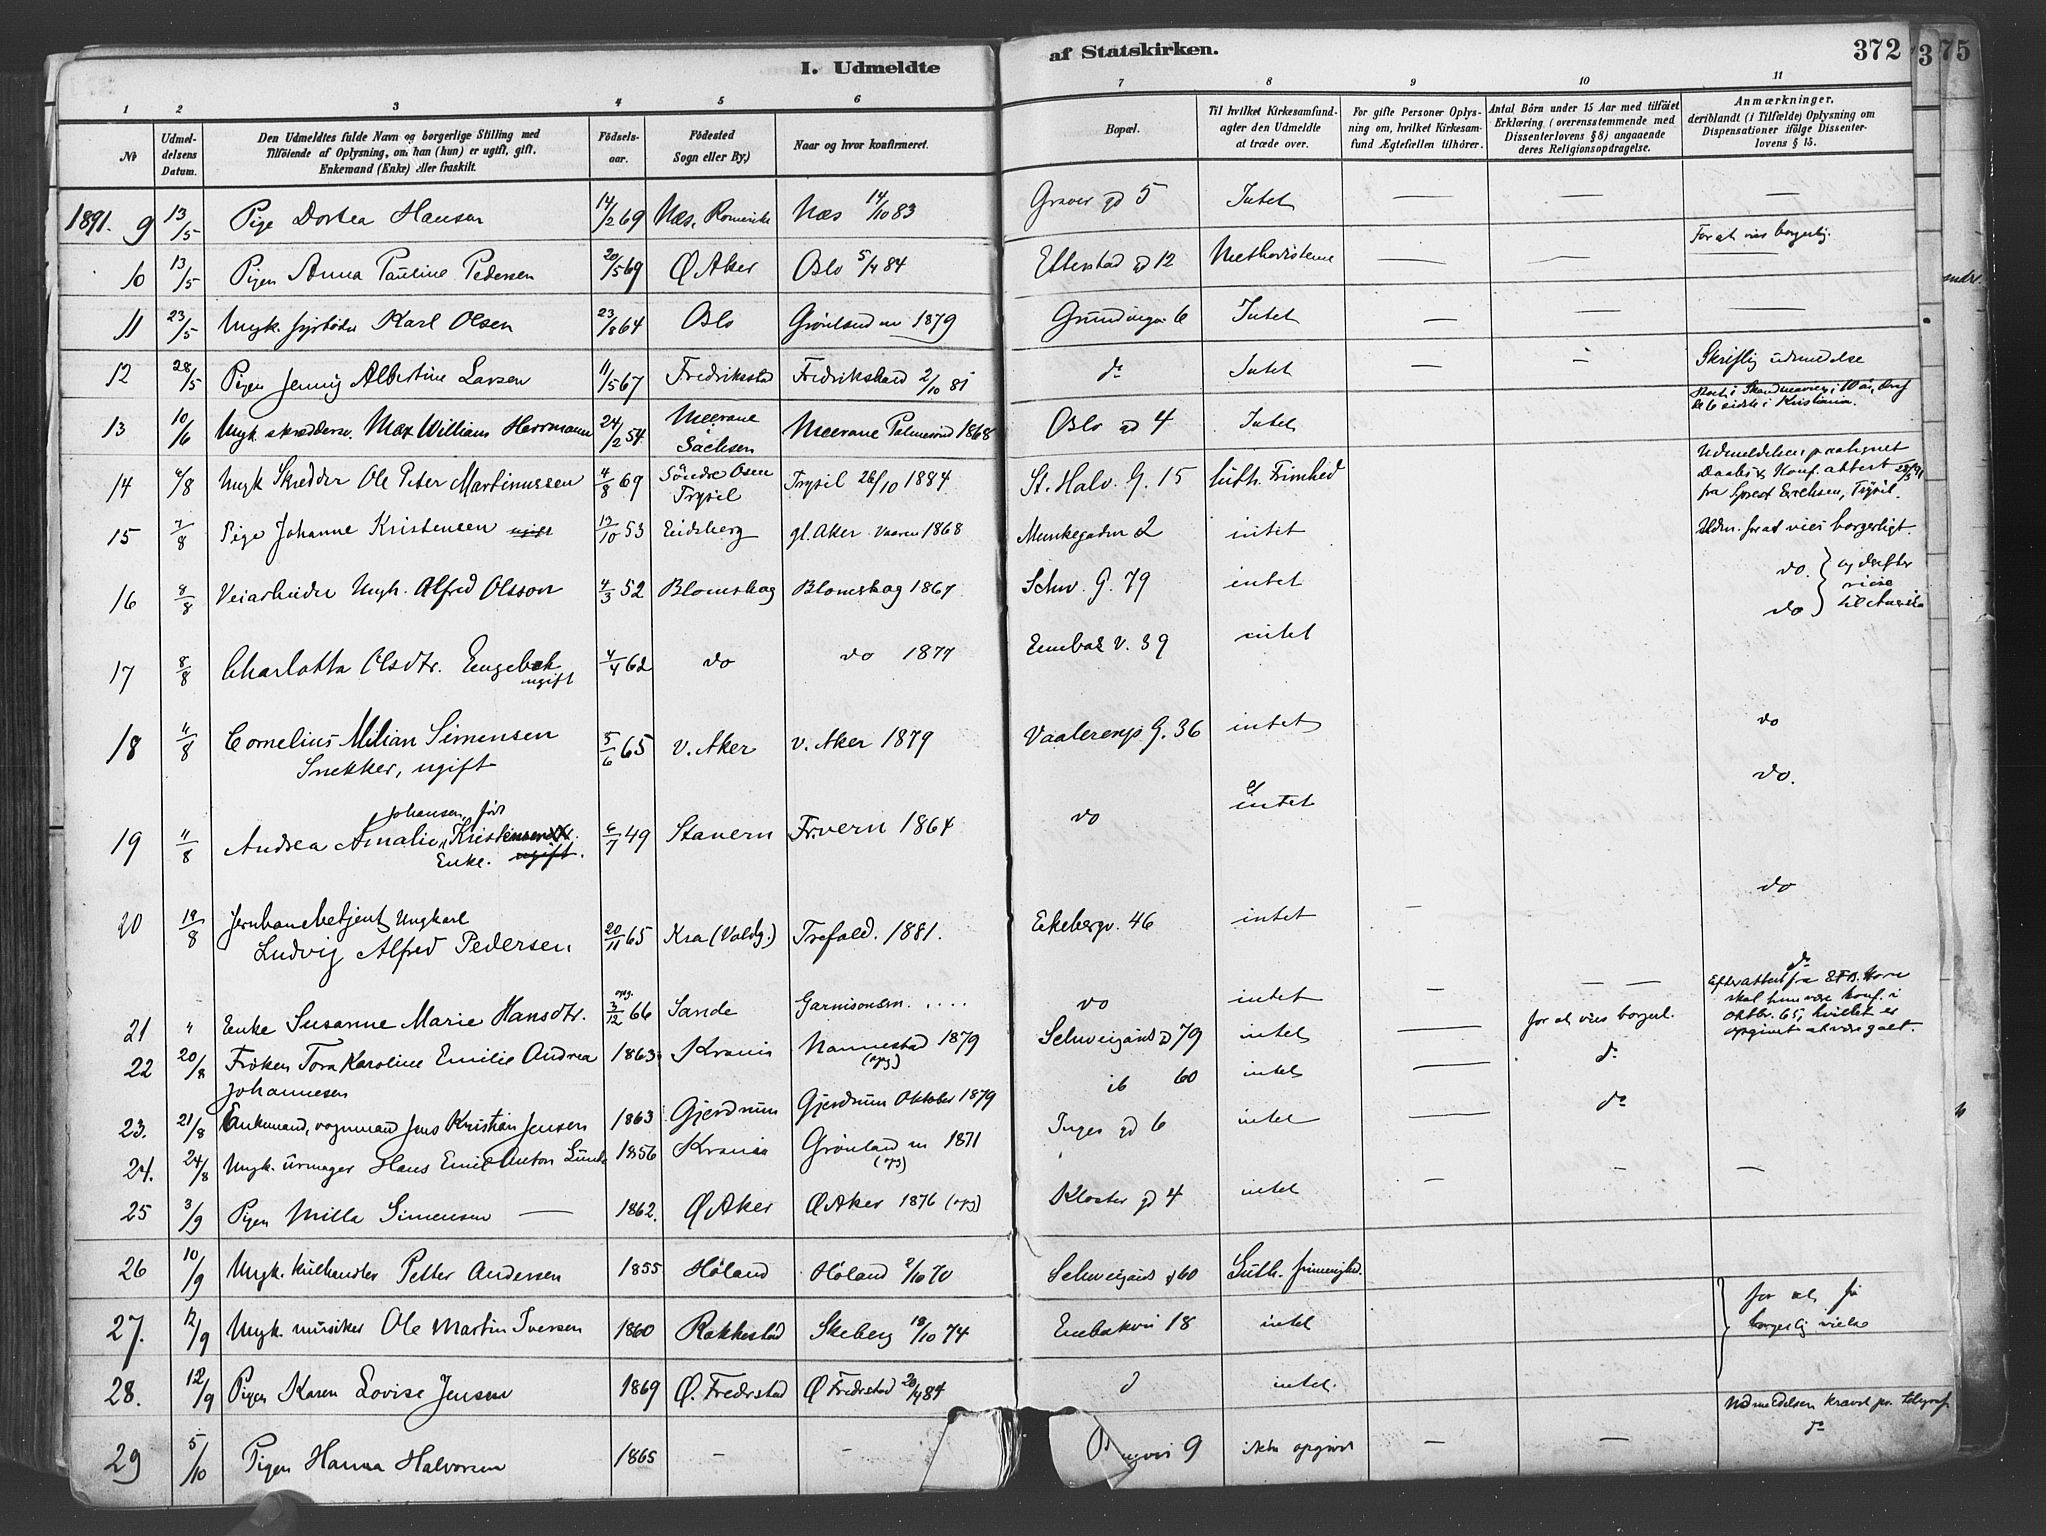 I. Udmeldte
af Statskirken.
372
3
75
1 2 3 4 5 6 7 8 9 10 11
No
Udmel-
delsens
Datum.
Den Udmeldtes fulde Navn og borgerlige Stilling med
Tilföiende af Oplysning, om han (hun) er ugift, gift,
Enkemand (Enke) eller fraskilt.
Födsels-
aar.
Födested
Sogn eller By.)
Naar og hvor konfirmeret.
Bopæl.
Til hvilket Kirkesamfund-
agter den Udmeldte
at træde over.
For gifte Personer Oplys-
ning om, hvilket Kirkesam-
fund Ægtefællen tilhörer.
Antal Börn under 15 Aar med tilföiet
Erklæring (overensstemmende med
Dissenterlovens § 8) angaaende
deres Religionsopdragelse.
Anmærkninger,
deriblandt (i Tilfælde) Oplysning om
Dispensationer ifölge Dissenter-
lovens § 15.
1891. 9 13/5 Pige Dortea Hansen 14/2 69 Næs, Romerike Næs 14/10 83 Graver gd 5 Intet — — —
10 13/5 Pigen Anna Pauline Pedersen 20/5 69 Ø Aker Oslo 5/4 84 Etterstad gd 12 Methodisterne — — For at vies borgerlig.
11 23/5 Ungk. fyrbøder Karl Olsen 23/8 64 Oslo Grönland m 1879 6 Intet — — —
12 28/5 Pigen Jenny Albertine Larsen 11/5 67 Fredriksstad Fredrikshald 2/10 81 do Intet — — Skriftlig udmeldelse
13 10/6 Ungk. skrædders. Max William Herrmann 24/2 54 Meerane Sachsen Meerane Palmesönd 1868 Oslo gd 4 Intet i Skandinavien i 10 år, deraf
de 6 sidste i Kristiania.
14 6/8 Ungk Skrædder Ole Peter Martinussen 4/8 69 Söndre Osen Trysil Trysil 26/10 1884 St. Halv. G. 15 luth. Frimhed Udmeldelsen paategnet
Daabs & Konf. attest
fra Sprest Erichsen, Trysil.
15 7/8 Pige Johanne Kristensen ugift 12/10 53 Eidsberg gl. Aker Vaaren 1868 Munkegaden 2 intet Udm. for at vies borgerligt.
16 8/8 Veiarbeider Ungk. Alfred Olsson 4/3 52 Blomskog Blomskog 1867 Schw. G. 79 intet do. og derefter
reise
til Amerika
17 8/8 Charlotta Olsdtr. Engebak ugift 4/4 62 do do 1877 Enebak V. 39 intet do
18 11/8 Cornelius Milian Simensen
Snekker, ugift 5/6 65 V. Aker V. Aker 1879 Vaalerengs G. 36 intet do
Johansen, föd
19 11/8 Andrea Amalie Kristensen
Enke. ugift. 6/7 49 Stavern Fr.vern 1864 do intet do.
20 19/8 Jernbanebetjent Ungkarl
Ludvig Alfred Pedersen 20/11 65 Kra (Valdg.) Trefold. 1881. Ekebergv. 46 intet — do
21 " Enke Susanne Marie Hansdtr. opg. 3/12 66 Sande Garnisonsm. .... do intet — — — do
Efter attest fra
skal hun være konf. i
Oktbr. 65, hvilket er
opgivet at være galt.
22 20/8 Frøken Tora Karoline Emilie Andrea
Johannesen 1863 Krania Nannestad 1879 (opg) Schweigårds gd 79 intet — for at vies borgerl.
23. 21/8 Enkemand, vognmand Jens Kristian Jensen 1863 Gjerdrum Gjerdrum Oktober 1879 ib 60 intet — do
24. 24/8 Ungk. urmager Hans Emil Anton Lunde 1856 Krania Grönland m 1871 (opg) Inges gd 6 intet — do
25 3/9 Pigen Milla Simensen — 1862. Ø Aker Ø Aker 1876 (opg) Kloster gd 4 intet — — —
26 10/9 Ungk. kulhandler Petter Andersen 1855 Høland Høland 2/10 70 Schweigårds gd 60 Luth. frimenighed.
27. 12/9 Ungk. musiker Ole Martin Iversen 1860 Rakkestad Skeberg 18/10 74 Enebakvei 18 intet for at få
borgerlig vielse
28. 12/9 Pigen Karen Lovise Jensen 1869 Ø. Fredrstad Ø Fredrstad 20/4 84 do intet.
29 5/10 Pigen Hanna Halvorsen 1865 — — 9 ikke opgivet — — Udmeldelsen krævet pr. telegraf
do